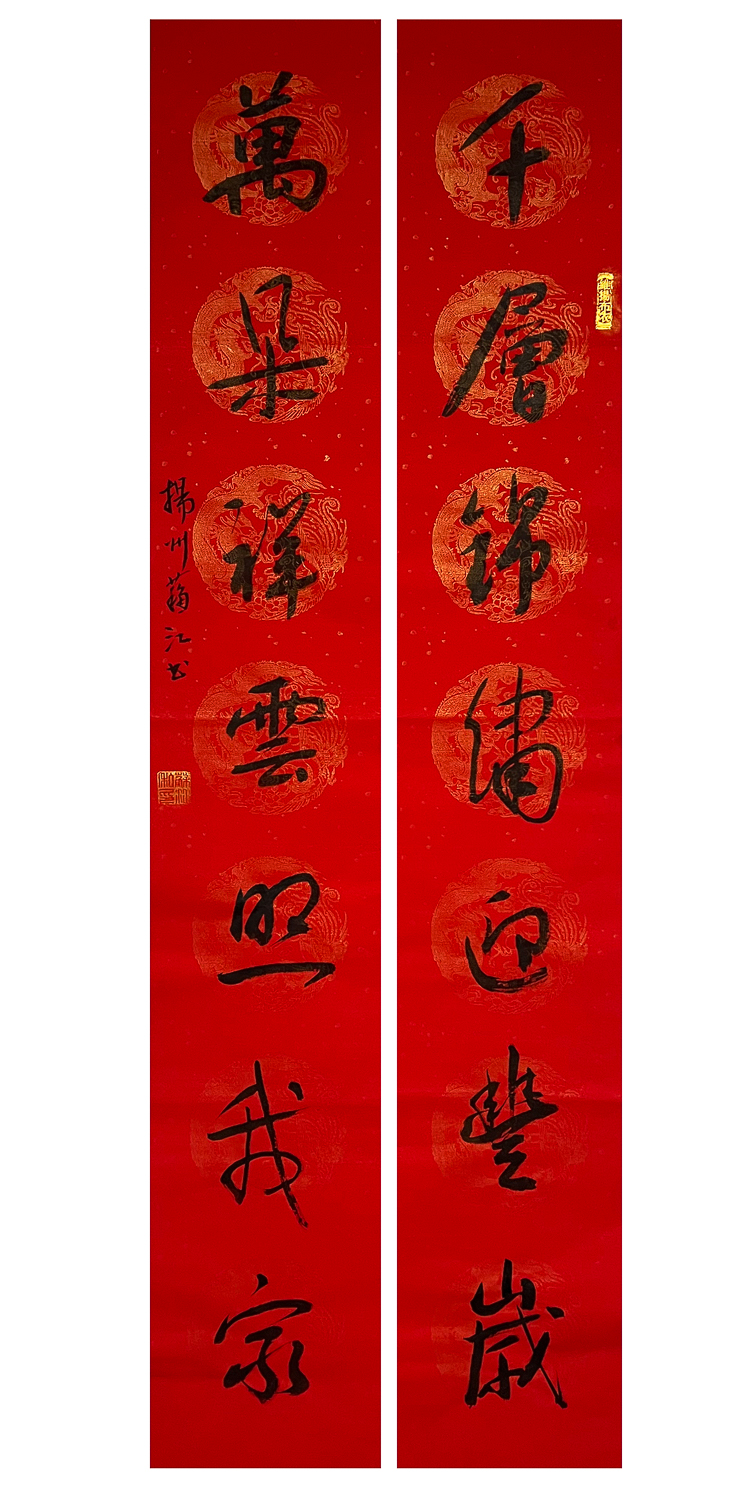 千層錦繡迎豐歲
萬朵祥雲照我家
揚州蔣江書